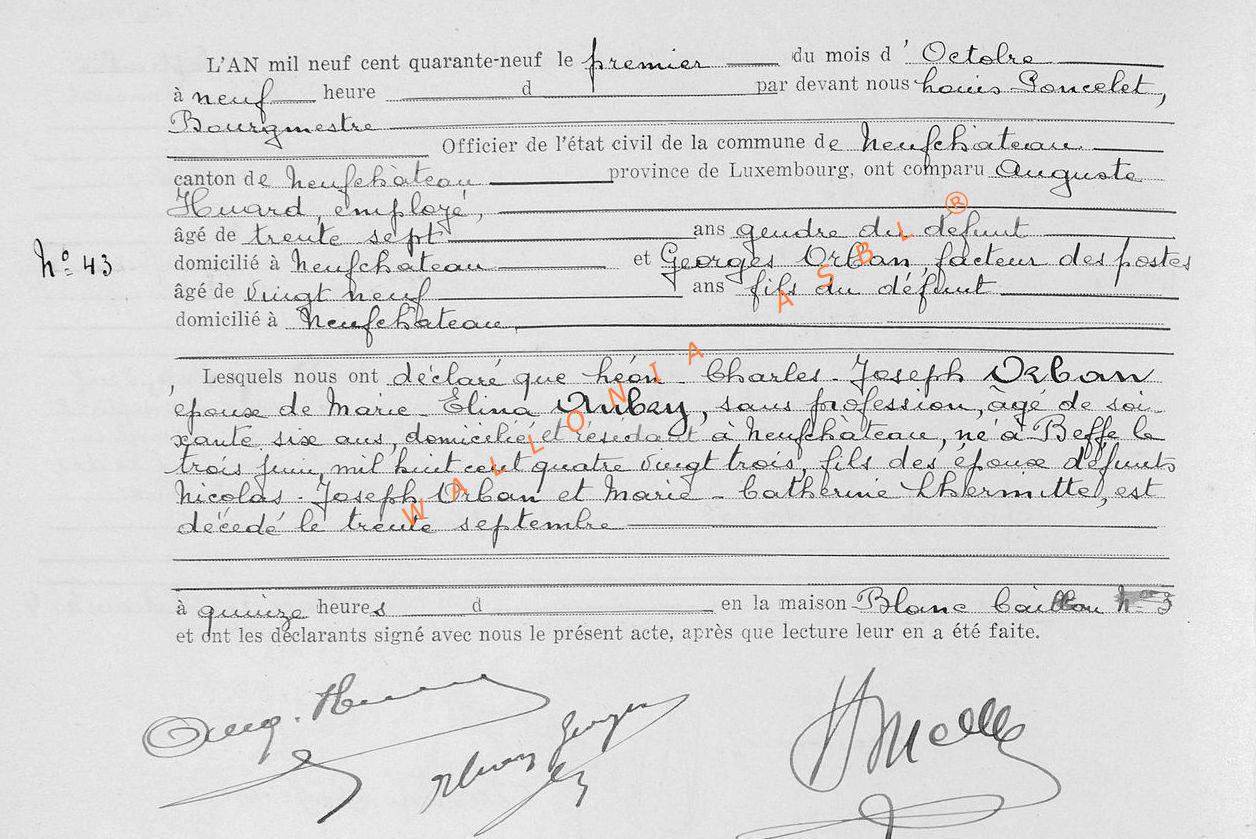 L'AN mil neuf cent quarante-neuf le premier du mois d' Octobre
à neuf heure d par devant nous Louis Poncelet,
Bourgmestre
Officier de l'état civil de la commune de Neufchâteau
canton de Neufchâteau province de Luxembourg, ont comparu Auguste
Huard, employé,
âgé de trente sept ans gendre du défunt
N° 43 domicilié à Neufchâteau et Georges Orban, facteur des postes
âgé de vingt neuf ans fils du défunt
domicilié à Neufchâteau,
Lesquels nous ont déclaré que Léon - Charles - Joseph Orban
époux de Marie - Elina Aubry, sans profession, âgé de soi-
xante six ans, domicilié et résidant à Neufchâteau, né à Beffe le
trois juin mil huit cent quatre vingt trois, fils des époux défunts
Nicolas - Joseph Orban et Marie - Catherine Lhermitte, est
décédé le trente septembre
à quinze heures d en la maison Blanc Caillou N° 3
et ont les déclarants signé avec nous le présent acte, après que lecture leur en a été faite.
WALLONIA ASBL ®